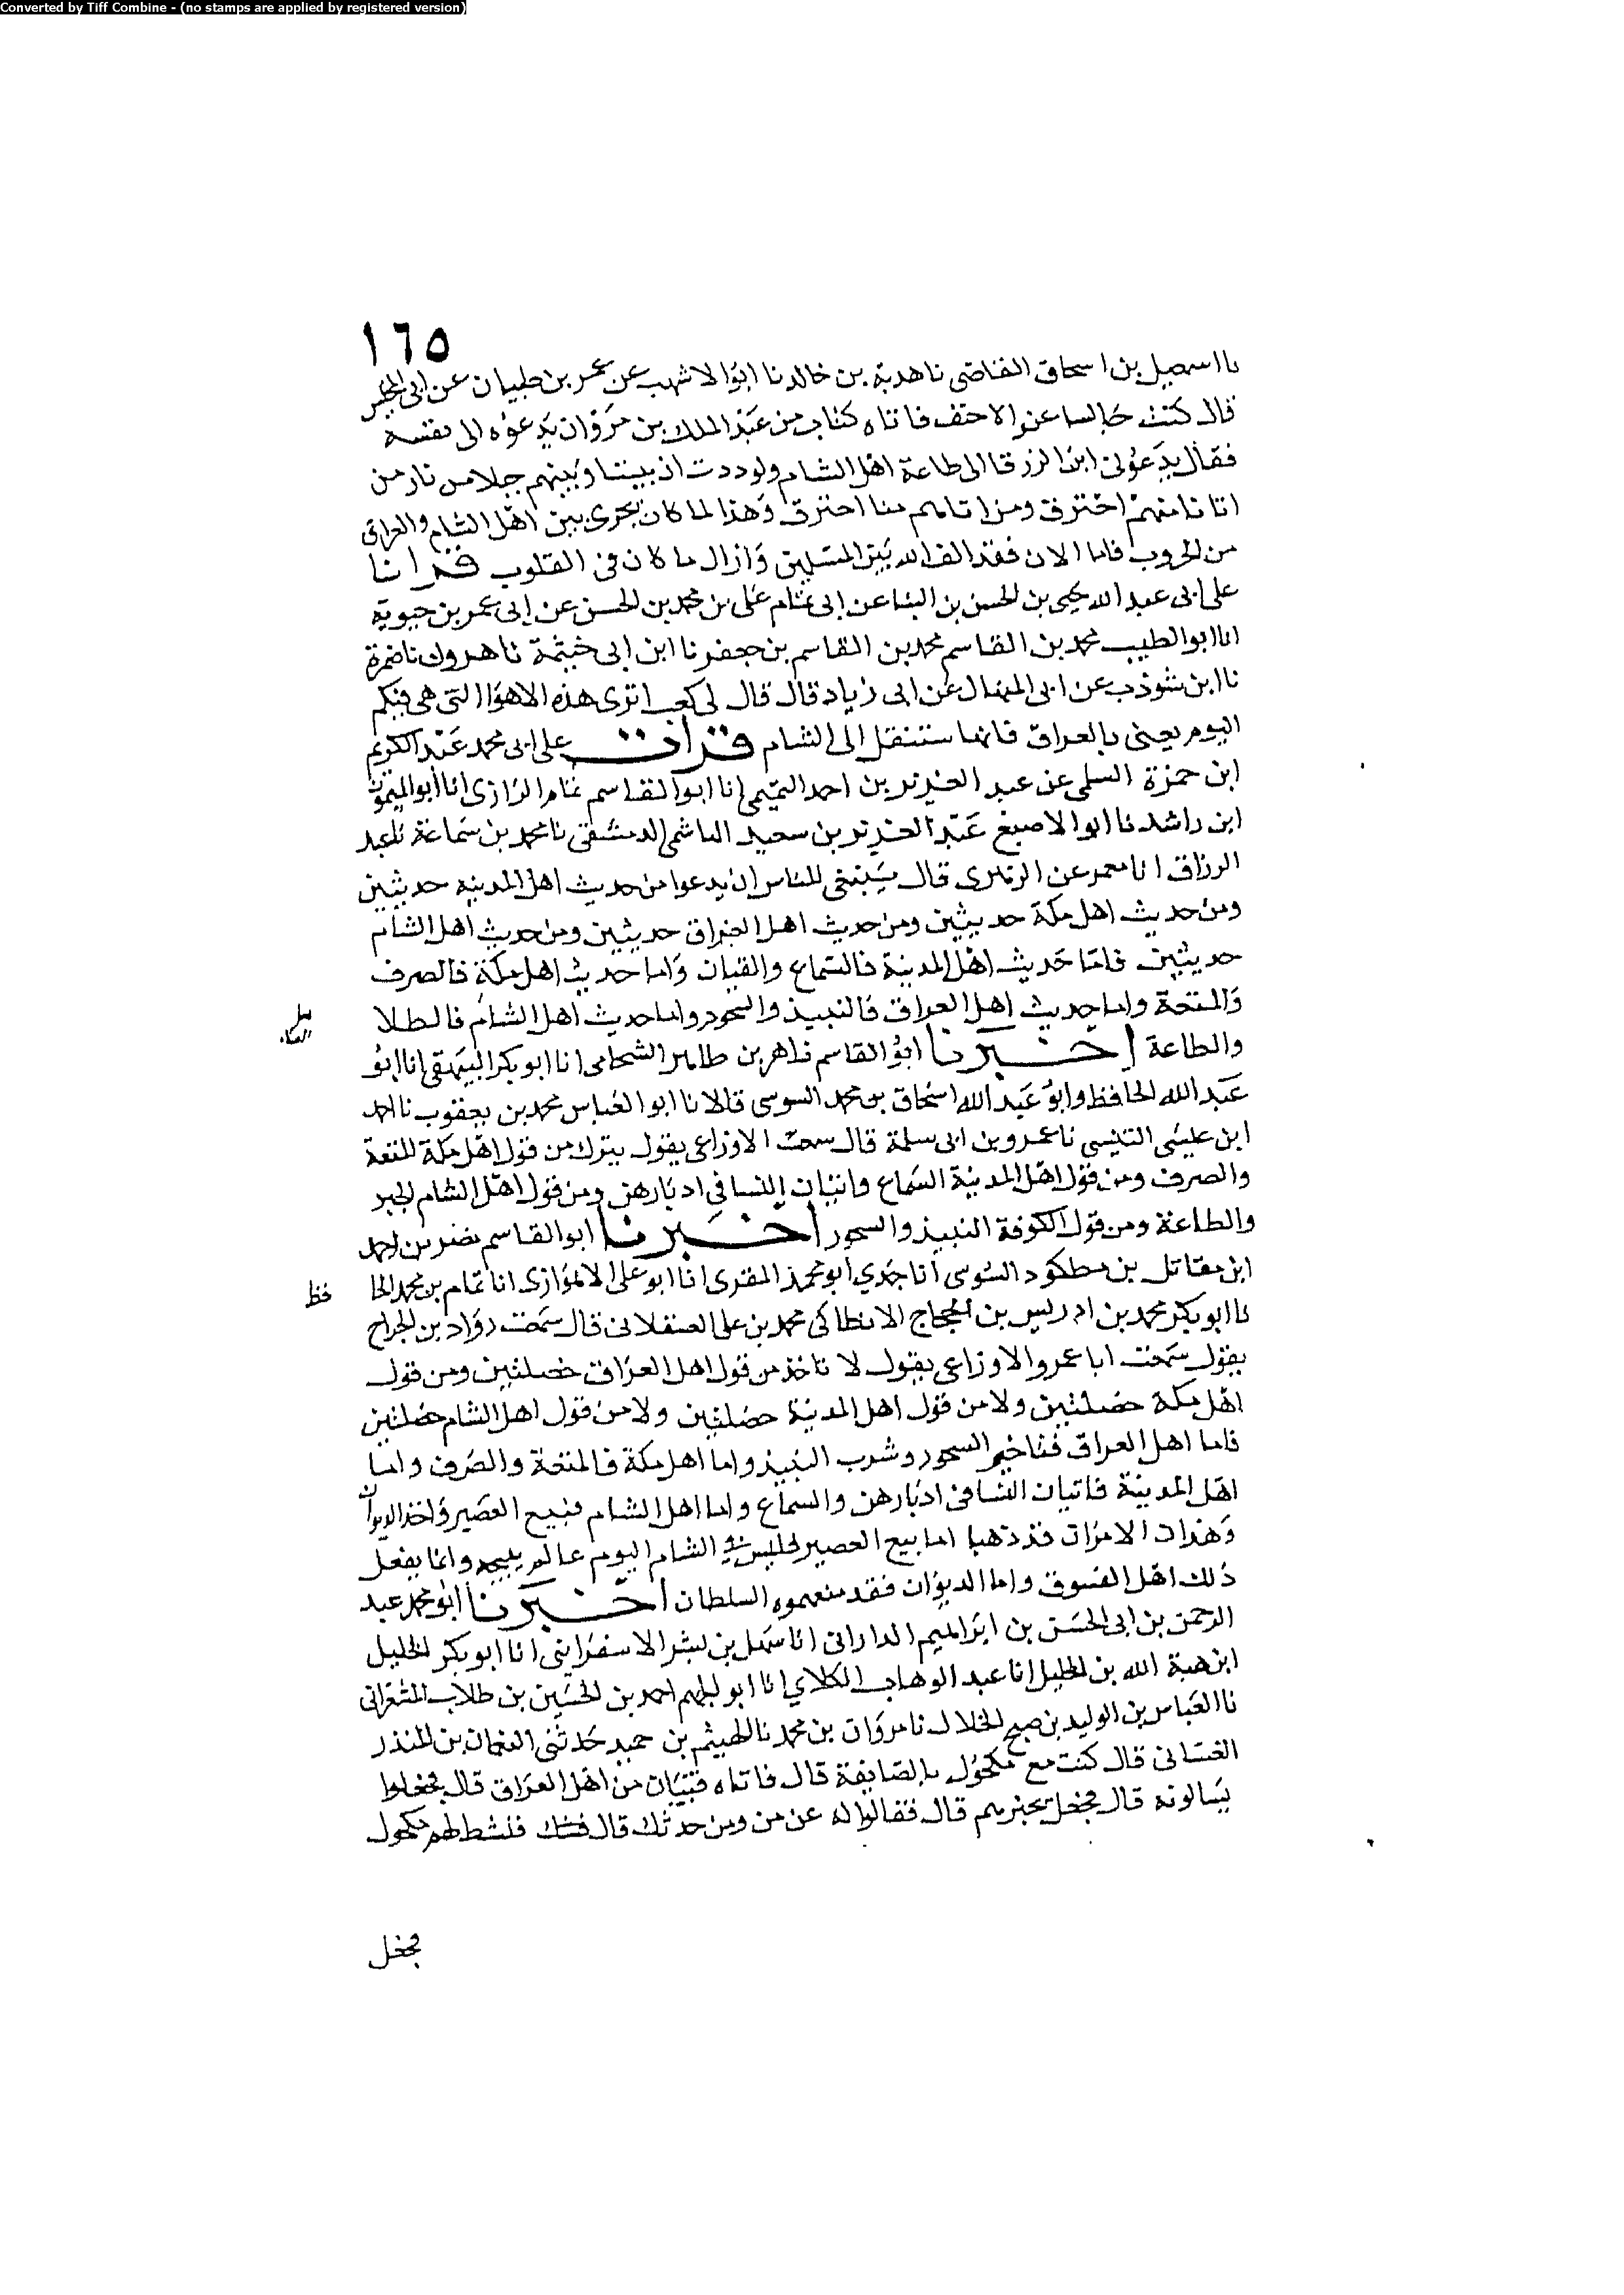 Converted by Tiff Combine - (no stamps are applied by registered version)
١٦٥
نا اسمعيل بن اسحاق القاضى نا هدبة بن خالد نا ابو الاشهب عن عمر بن ظبيان عن ابى
قال كنت جالسا عند الاحنف فاتاه كتاب من عبد الملك بن مروان يدعوه الى نفسه
فقال يدعونى ابن الزرقا الى طاعة اهل الشام ولوددت ان بيننا وبينهم جبلا من نار من
اتانا منهم احترق ومن اتاهم منا احترق وهذا لما كان يجرى بين اهل الشام والعراق
من الحروب فاما الان فقد الف الله بين المسلمين وازال ما كان فى القلوب قرانا
على ابى عبد الله يحيى بن الحسن بن البنا عن ابى تمام على بن محمد بن الحسن عن ابى عمر بن حيوية
انا ابو الطيب محمد بن القاسم محمد بن القاسم بن جعفر نا ابن ابى خيثمة نا هروك ناضمرة
نا ابن شوذب عن ابى المنهال عن ابى زياد قال قال لى كعب اترى هذه الاهوا التى هى فيكم
اليوم يعنى بالعراق فانها ستنقل الى الشام قرات على ابى محمد عبد الكريم
ابن حمزة السلمى عن عبد العزيز بن احمد التميمى انا ابو القاسم تمام الرازى انا أبو الميمون
ابن راشد نا ابو الاصبغ عبد العزيز بن سعيد الهاشمى الدمشقى نا محمد بن سماعة نا عبد
الرزاق انا معمر عن الزهرى قال ينبغى للناس ان يدعوا من حديث اهل المدينه حديثين
ومن حديث اهل مكة حديثين ومن حديث اهل العراق حديثين ومن حديث اهل الشام
حديثين فاما حديث اهل المدينة فالسماع والقيان واما حديث اهل مكة فالصرف
والمتعة واما حديث اهل العراق فالنبيذ والسحور واما حديث اهل الشام فالطلا
والطاعة اخبرنا ابو القاسم زاهر بن طاهر الشحامى انا ابو بكر البيهقى انا ابو
عبد الله الحافظ وابو عبد الله اسحاق بن محمد السوسى قالا نا ابو العباس محمد بن يعقوب نا احمد
ابن عيسى التنيسى نا عمرو بن ابى سلمة قال سمعت الاوزاعى يقول يترك من قول اهل مكة المتعة
والصرف ومن قول اهل المدينة السماع واتيان النسا فى ادبارهن ومن قول اهل الشام الجبر
والطاعة ومن قول الكوفة النبيذ والسحور اخبرنا ابو القاسم نصر بن احمد
ابن مقاتل بن مطكود السوسى أنا جدي أبو محمد المقرى انا ابو على الاهوازى انا تمام بن محمد الحا فظ
نا ابو بكر محمد بن ادريس بن الحجاج الانطاكى محمد بن على العسقلانى قال سمعت رواد بن الجراح
يقول سمعت ابا عمرو الاوزاعى يقول لا تاخذ من قول اهل العراق خصلتين ومن قول
اهل مكة خصلتين ولا من قول اهل المدينة خصلتين ولا من قول اهل الشام خصلتين
فاما اهل العراق فتاخير السحور وشرب النبيذ واما اهل مكة فالمتعة والصرف واما
اهل المدينة فاتيان النسا فى ادبارهن والسماع واما اهل الشام فبيع العصير واخذ الديوان
وهذان الامران قد ذهبا اما بيع العصير فليس فى الشام اليوم عالم يبيحه وانما يفعل
ذلك اهل الفسوق واما الديوان فقد منعهموه السلطان اخبرنا ابو محمد عبد
الرحمن بن ابى الحسن بن ابراهيم الدارانى انا سهل بن بشر الاسفراينى انا ابو بكر الخليل
ابن هبة الله بن الخليل انا عبد الوهاب الكلابي انا ابو الجهم احمد بن الحسين بن طلاب المشغرانى
نا العباس بن الوليد بن صبح الخلال نا مروان بن محمد نا الهيثم بن حميد حدثنى النعمان بن المنذر
الغسانى قال كنت مع مكحول بالصايفة قال فاتاه فتيان من اهل العراق قال فجعلوا
يسالونه قال فجعل يخبرهم قال فقالوا له عن من ومن حدثك قال فنشط لهم مكحول
فجعل